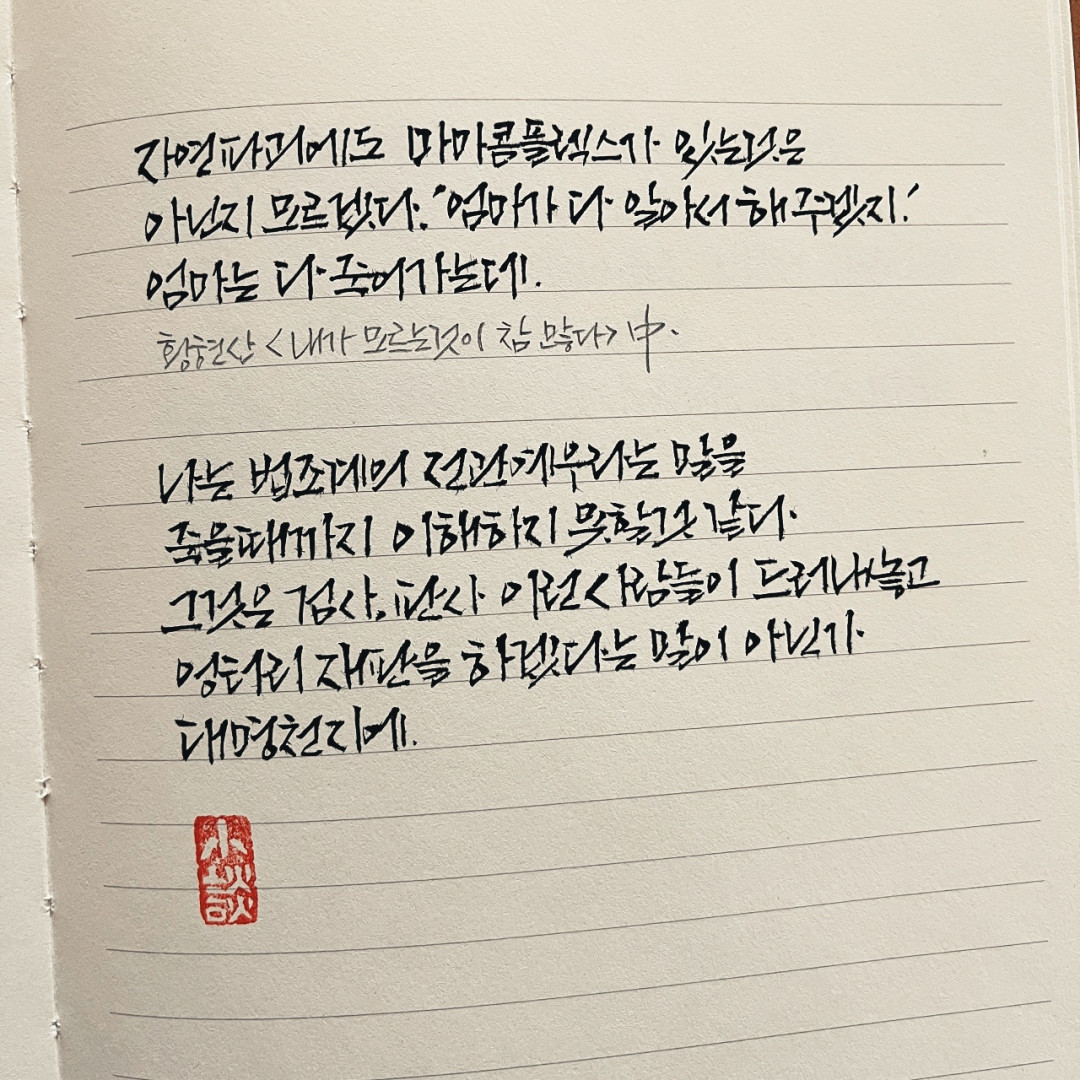 자연파괴에도 마마콤플렉스가 있는것은
아닌지 모르겠다. '엄마가 다 알아서 해주겠지.'
엄마는 다 죽어가는데.
황현산 <내가 모르는것이 참 많다> 中.
나는 법조계의 전관예우라는 말을
죽을때까지 이해하지 못할것 같다.
그것은 검사, 판사 이런 사람들이 드러내놓고
엉터리 재판을 하겠다는 말이 아닌가
대명천지에.
小談